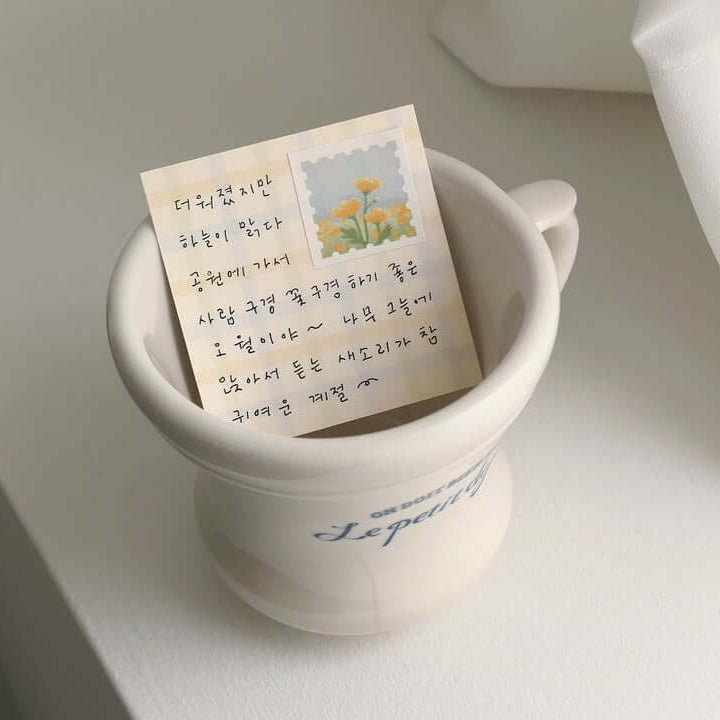 더워졌지만
하늘이 맑다
공원에 가서
사람 구경 꽃구경 하기 좋은
오월이야~ 나무 그늘에
앉아서 듣는 새소리가 참
귀여운 계절
ON DOIT
Le petit